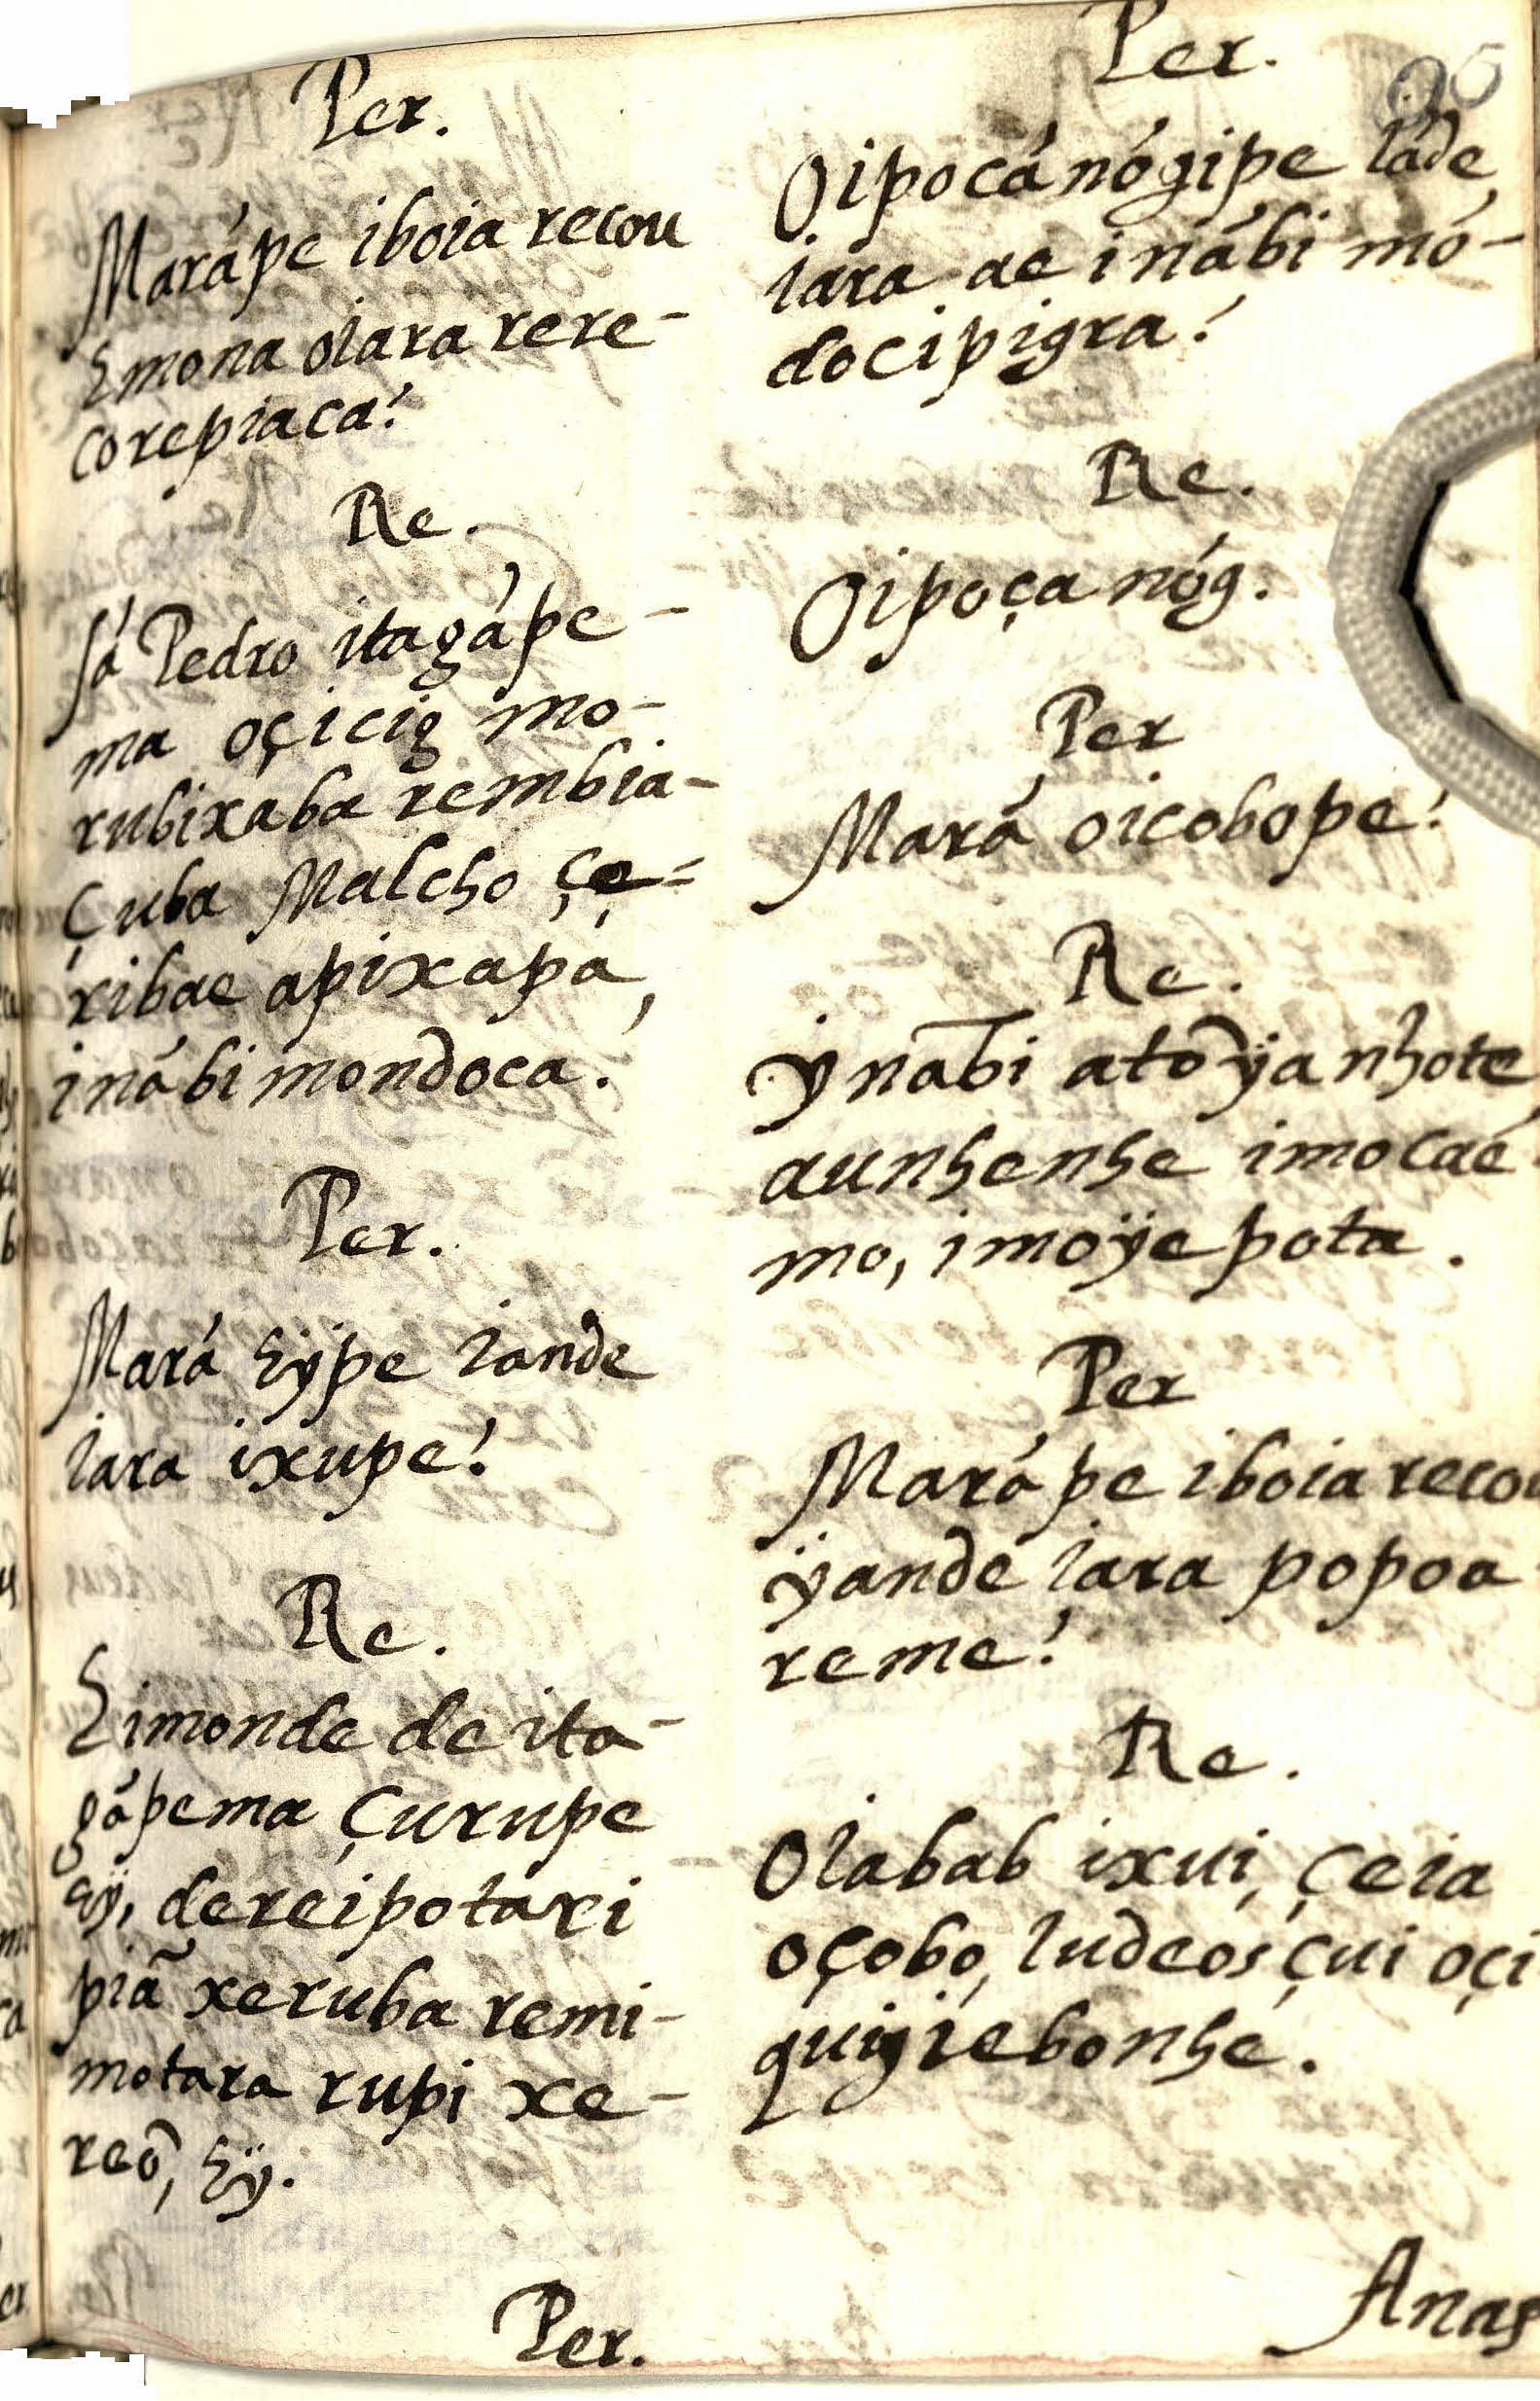 Per.
Marápe iboia recou
Emona oiara rere-
corepiaca?
Re.
Sá Pedro itagápe-
ma oçicig mo-
rubixaba rembia-
çuba Malcho çe=
ribae apixapá,
inábi mondoca.
Per.
Mará Eÿpe iande
iara ixupe?
Re.
Eimonde de ita-
gápema çurupe
eÿ, dereipotari
piã xeruba remi-
motara rupi xe-
reõ, Eÿ.
Per.
Per.
95
Oipocánógipe iãde
iara ae inábi mó-
docipigra?
Re.
Oipoça nóg.
Per
Mará oicobope?
Re.
ÿnãbi atõÿanhote,
aunhenhe imocae
mo, imoÿepota.
Per
Marápe iboia recou
ÿande iara popoa
reme?
Re.
Oiabab ixui, çeia
oçobo, Iudeos çui oçi
quigiébonhe.
Anas